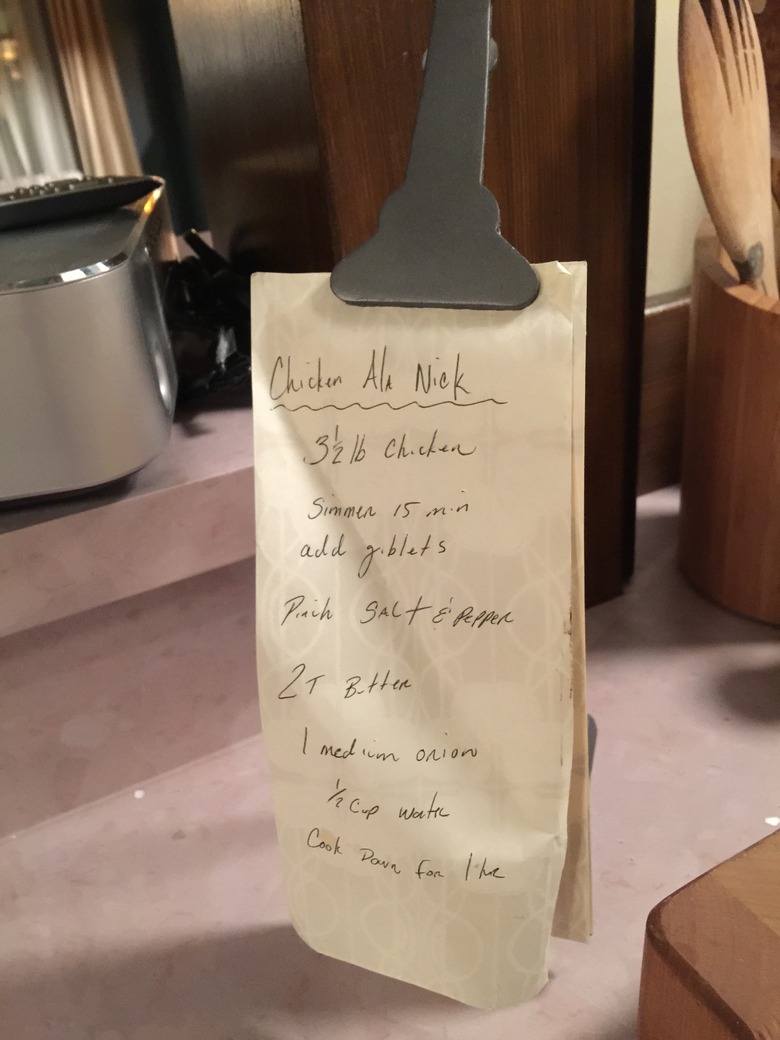 Chicken Ala Nick
3½ lb Chicken
Simmer 15 min
add giblets
Pinch Salt & Pepper
2T Butter
1 medium onion
½ cup water
Cook Down for 1 hr